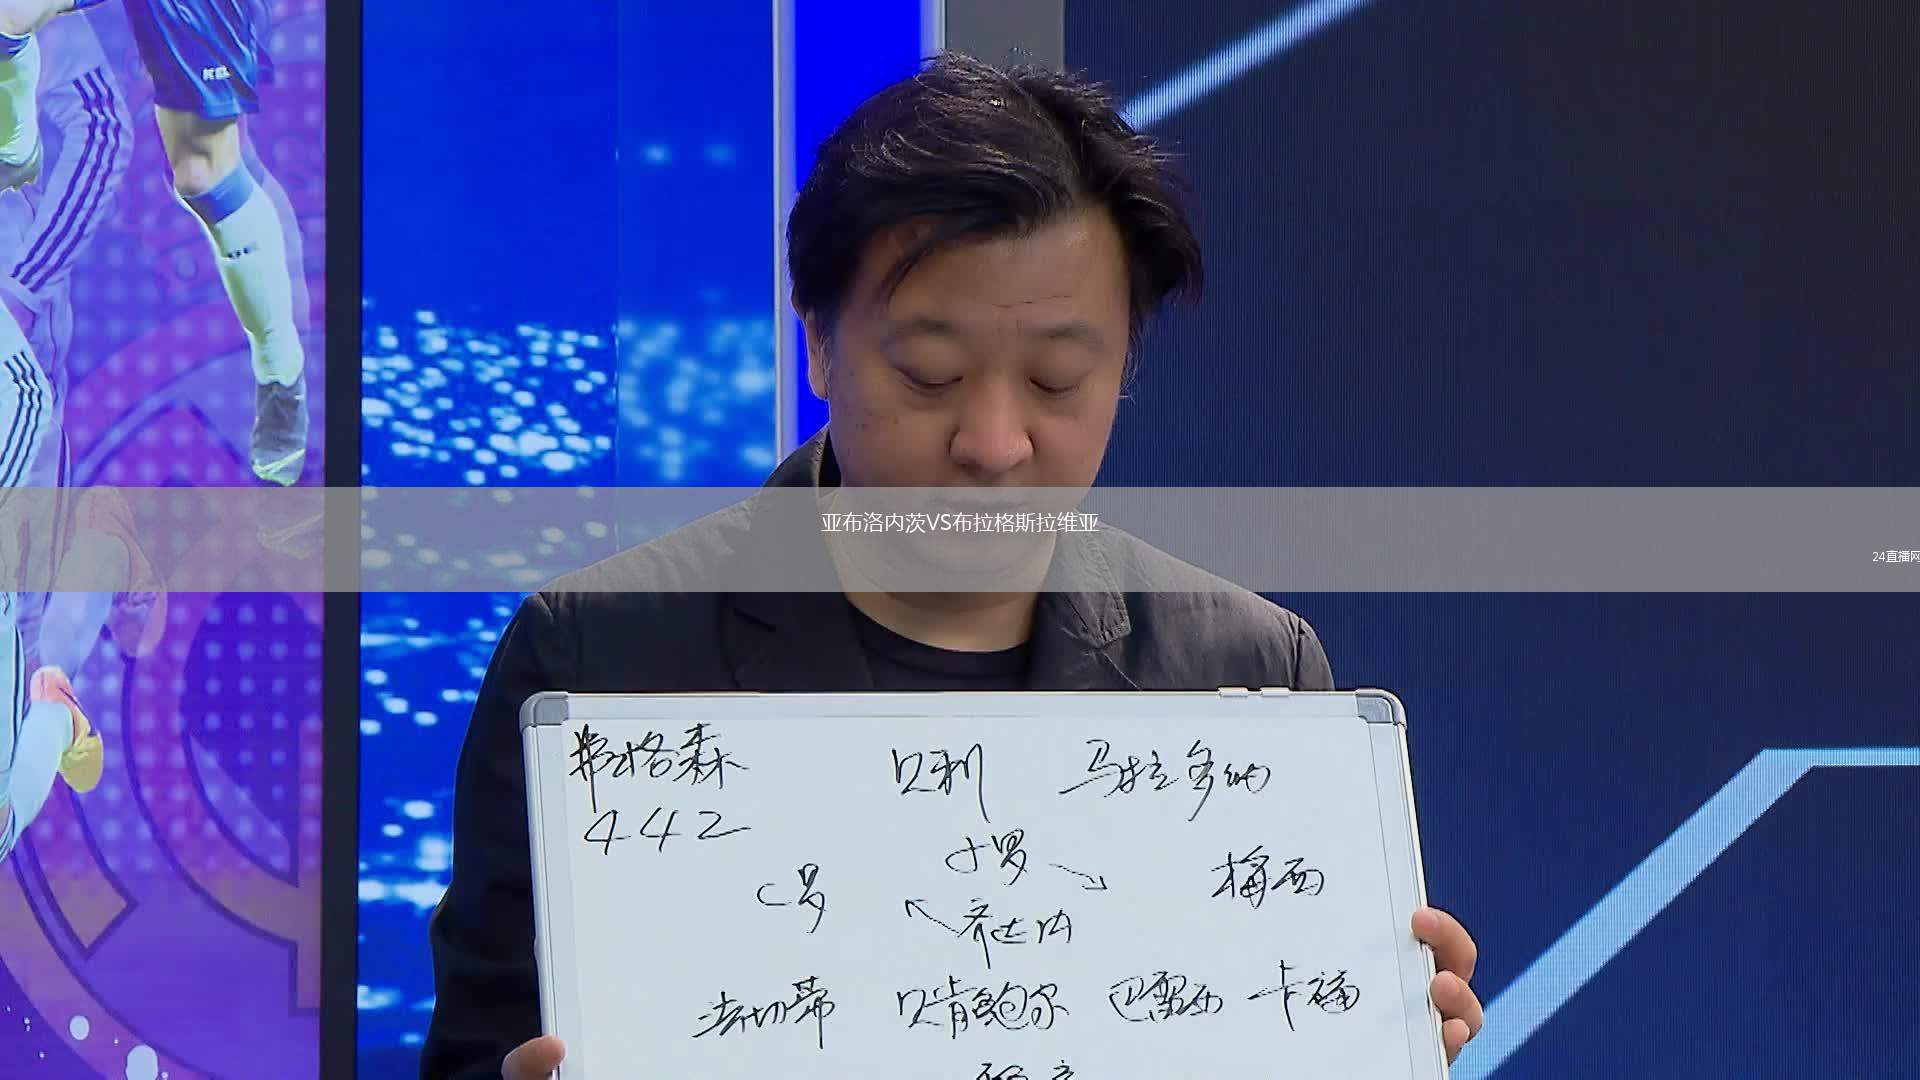 亚布洛内茨VS布拉格斯拉维亚
24直播网
弗格森 贝利 马拉多纳
442
小罗
C罗 梅西
齐达内
法切蒂 贝肯鲍尔 巴雷西 卡福